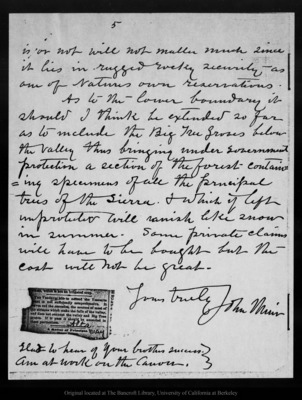 5
is or not will not matter much since
it lies in rugged rocky security as
one of Natures own reservations.
As to the lower boundary it
should I think be extended so far
as to include the Big Tree Groves below
the Valley thus bringing under Government
protection a section of the forest contain-
=ing specimens of all the principal
trees of the Sierra. & which if left
unprotected will vanish like snow
in summer. Some private claims
will have to be bought but the
cost will not be great.
Yours truly
John Muir
Glad to hear of your brothers success
Am at work on the Canon.
Original located at The Bancroft Library, University of California at Berkeley